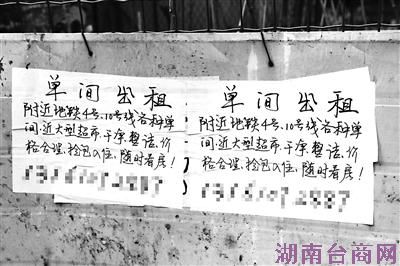 单间出租
附近地铁4号、10号线各种单
间.近大型超市.干净整洁.价
格合理.拎包入住,随时看房!
单间出租
附近地铁4号、10号线各种单
间.近大型超市.干净整洁.价
格合理.拎包入住,随时看房!
湖南台商网